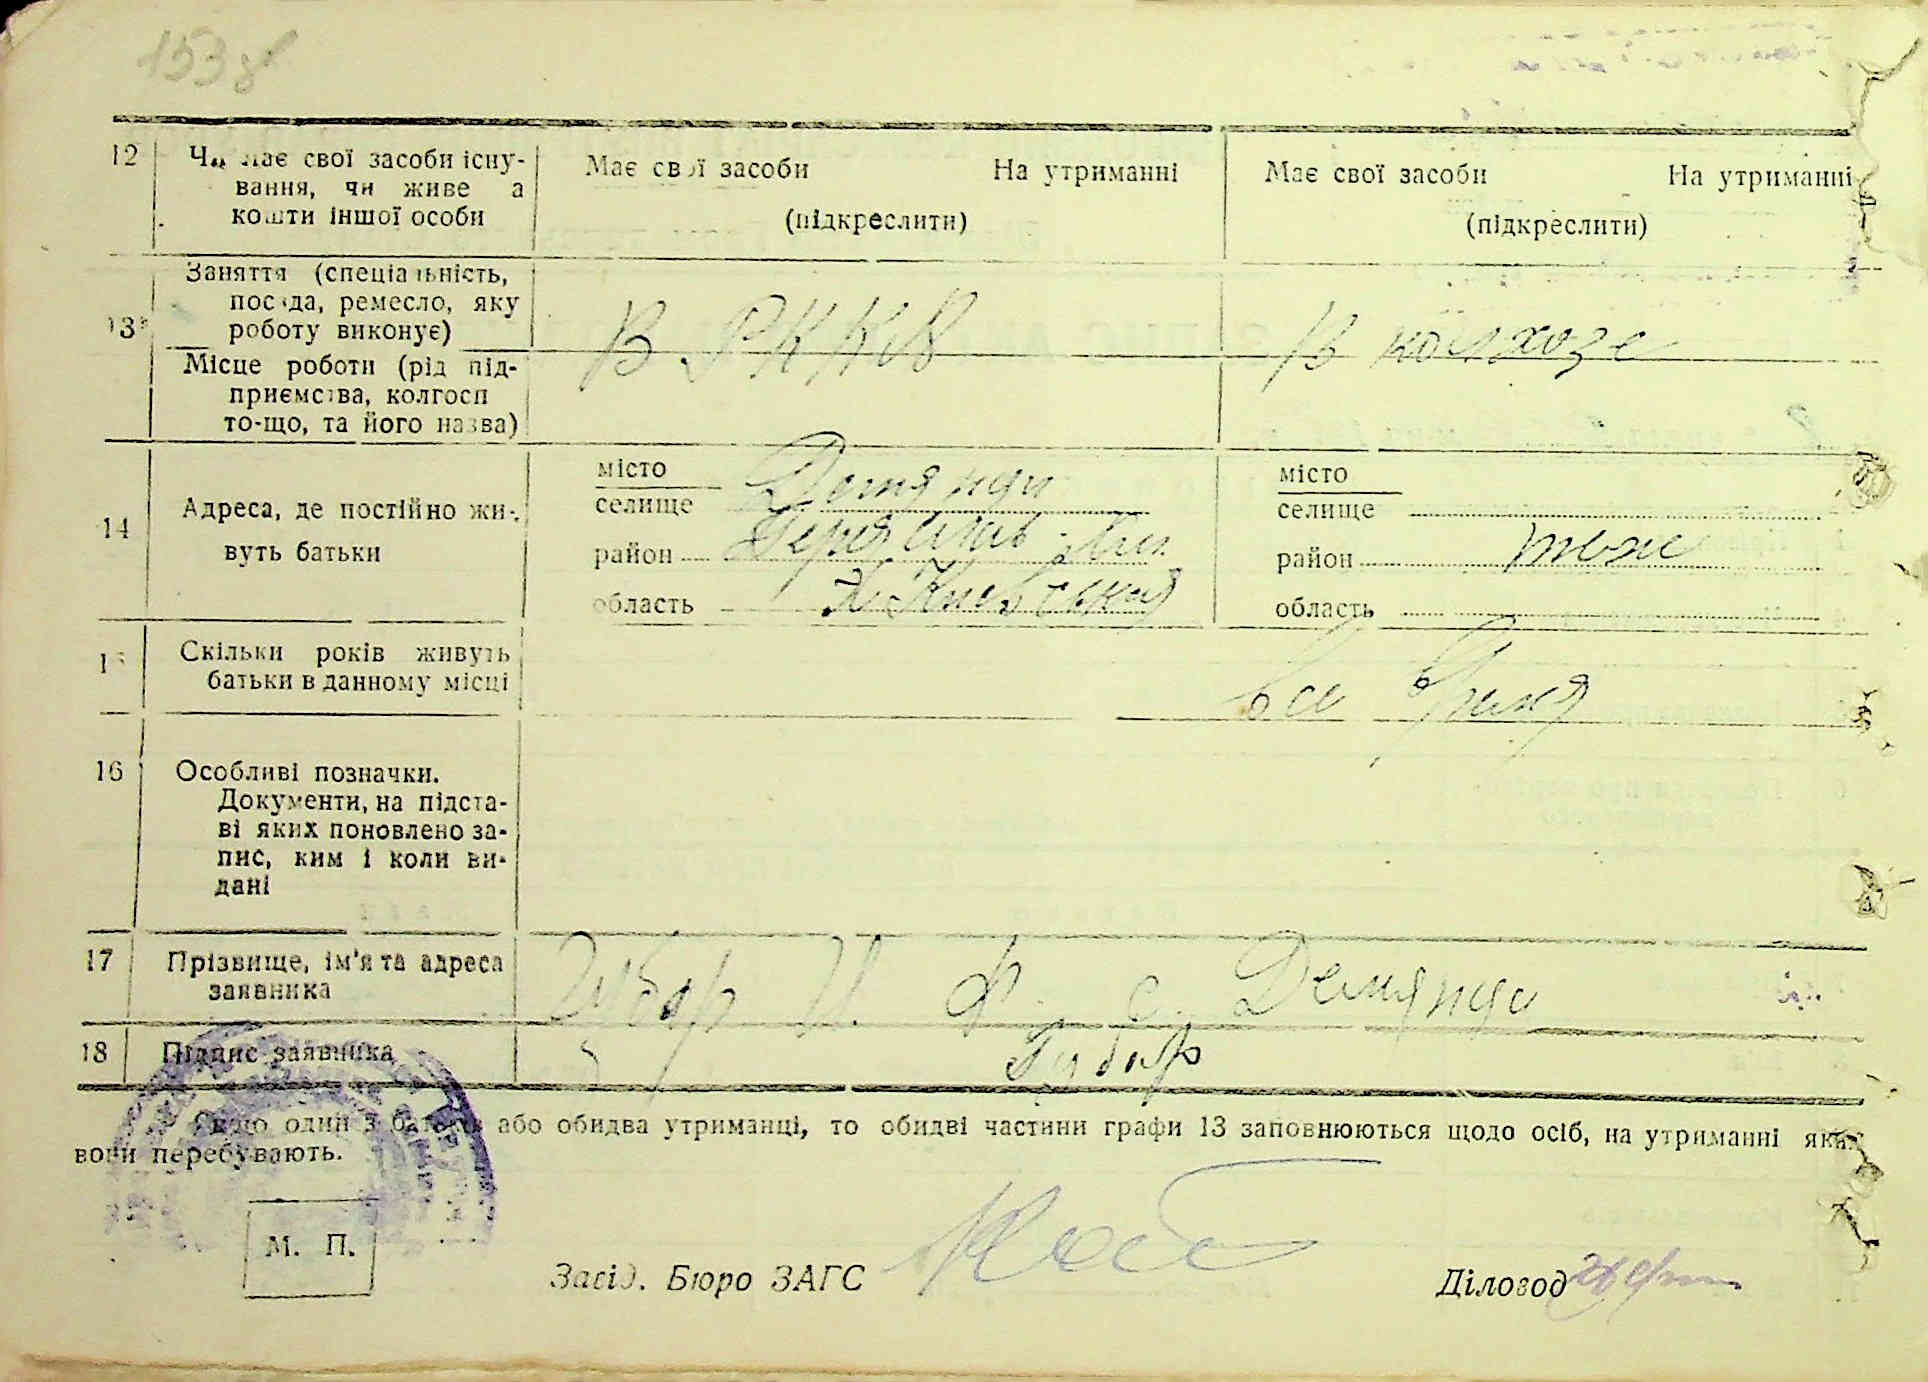 153 в
12 Чи має свої засоби існу-
вання, чи живе а
кошти іншої особи
Має свої засоби На утриманні
(підкреслити)
Має свої засоби На утриманні
(підкреслити)
13 Заняття (спеціальність,
посада, ремесло, яку
роботу виконує)
Місце роботи (рід під-
приємства, колгосп
то-що, та його назва)
В РККА
В колхозе
14 Адреса, де постійно жи-
вуть батьки
місто
селище Демянци
район Переяслав-Хм
область Киевськая
місто
селище
район тоже
область
15 Скільки років живуть
батьки в данному місці
все время
16 Особливі позначки.
Документи, на підста-
ві яких поновлено за-
пис, ким і коли ви-
дані
17 Прізвище, ім'я та адреса
заявника
Губар И. Ф. с. Демянци
18 Підпис заявника Губар
Якщо один з батьків або обидва утриманці, то обидві частини графи 13 заповнюються щодо осіб, на утриманні яких
вони перебувають.
М. П.
Засід. Бюро ЗАГС
Діловод